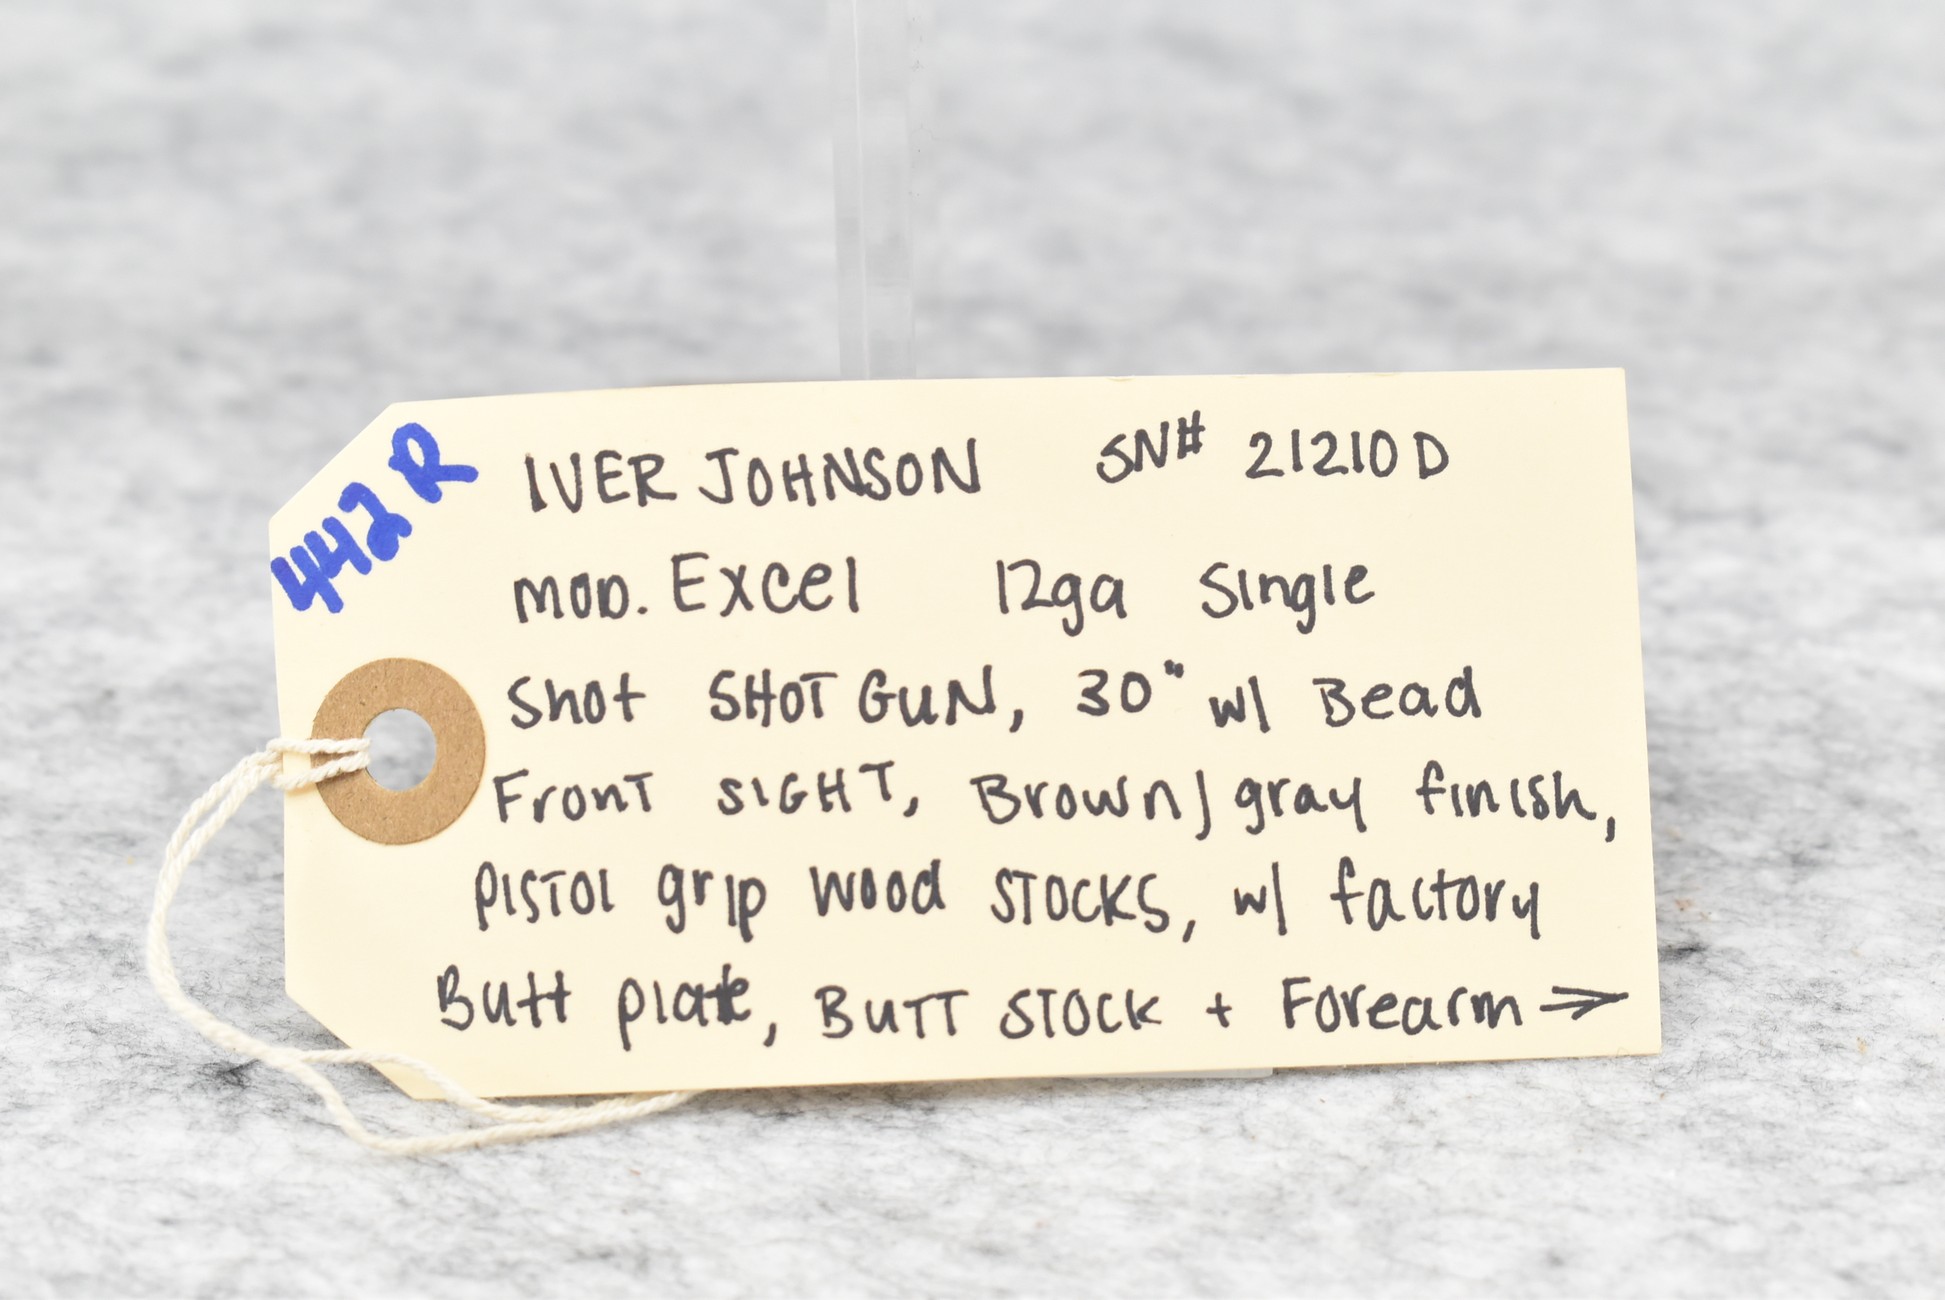 442R
IVER JOHNSON SN# 21210D
MOD. Excel 12ga Single
Shot SHOTGUN, 30" w/ Bead
Front SIGHT, Brown/gray finish,
PISTOl grip wood STOCKS, w/ factory
Butt plate, BUTT STOCK + Forearm →